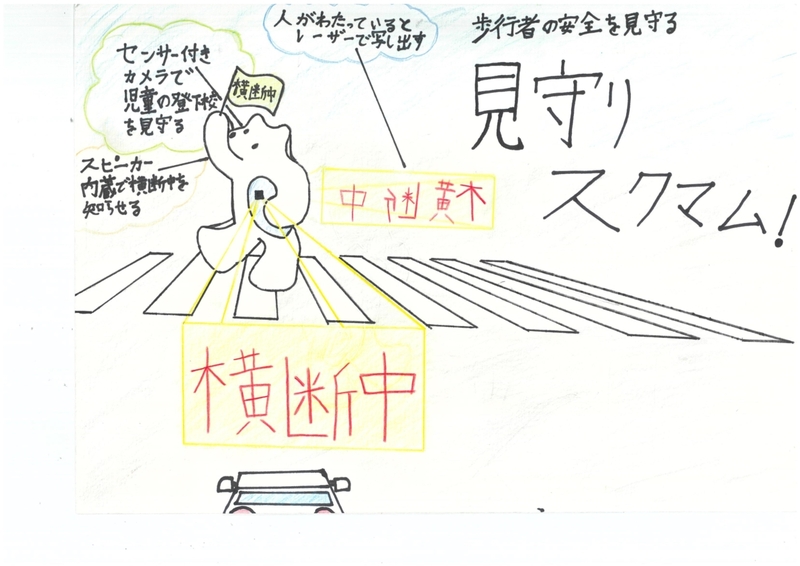 歩行者の安全を見守る
見守り
スクマム!
人がわたっていると
レーザーで写し出す
センサー付き
カメラで
児童の登下校
を見守る
横断中
スピーカー
内蔵で横断中を
知らせる
横断中
横断中